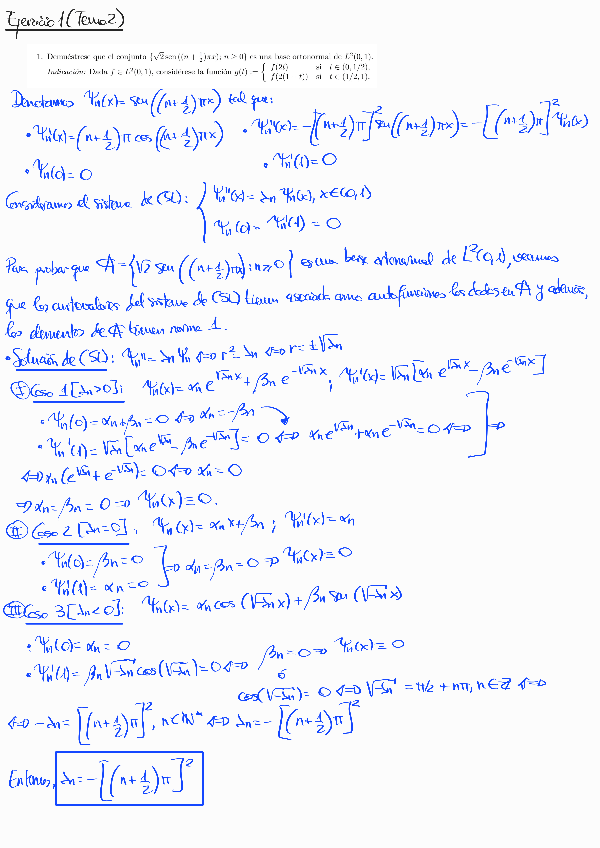 Ejercicio 1 (Tema 2)
1. Demuéstrese que el conjunto {√2 sen ((n + 1/2)πx); n ≥ 0} es una base ortonormal de L²(0, 1).
Indicación: Dada f ∈ L²(0, 1), considérese la función g(t) := { f(2t) si t ∈ (0, 1/2), f(2(1 − t)) si t ∈ (1/2, 1).
Denotamos Ψn(x) = sen((n+1/2)πx) tal que:
• Ψn'(x) = (n+1/2)π cos((n+1/2)πx) • Ψn''(x) = −[(n+1/2)π]² sen((n+1/2)πx) = −[(n+1/2)π]² Ψn(x)
• Ψn(0) = 0 • Ψn'(1) = 0
Consideramos el sistema de (SL): { Ψn''(x) = λn Ψn(x), x∈(0,1)
Ψn(0) = Ψn'(1) = 0
Para probar que A = {√2 sen((n+1/2)πx): n≥0} es una base ortonormal de L²(0,1), veamos
que los autovalores del sistema de (SL) tienen asociada como autofunciones los dados en A y además,
los elementos de A tienen norma 1.
• Solución de (SL): Ψn'' = λn Ψn ⇔ r² = λn ⇔ r = ±√λn
I Caso 1 [λn>0]: Ψn(x) = αn e^{√λn x} + βn e^{−√λn x}; Ψn'(x) = √λn [αn e^{√λn x} − βn e^{−√λn x}]
• Ψn(0) = αn + βn = 0 ⇔ αn = −βn
• Ψn'(1) = √λn [αn e^{√λn} − βn e^{−√λn}] = 0 ⇔ αn e^{√λn} + αn e^{−√λn} = 0 ⇔ ] ⇒
⇔ αn (e^{√λn} + e^{−√λn}) = 0 ⇔ αn = 0
⇒ αn = βn = 0 ⇒ Ψn(x) ≡ 0.
II Caso 2 [λn=0]: Ψn(x) = αn x + βn; Ψn'(x) = αn
• Ψn(0) = βn = 0 ] ⇒ αn = βn = 0 ⇒ Ψn(x) ≡ 0
• Ψn'(1) = αn = 0
III Caso 3 [λn<0]: Ψn(x) = αn cos(√−λn x) + βn sen(√−λn x)
• Ψn(0) = αn = 0
• Ψn'(1) = βn √−λn cos(√−λn) = 0 ⇔ βn = 0 ⇒ Ψn(x) ≡ 0
ó
cos(√−λn) = 0 ⇔ √−λn = π/2 + nπ, n∈ℤ ⇔
⇔ −λn = [(n+1/2)π]², n∈ℕ* ⇔ λn = −[(n+1/2)π]²
Entonces, λn = −[(n+1/2)π]²